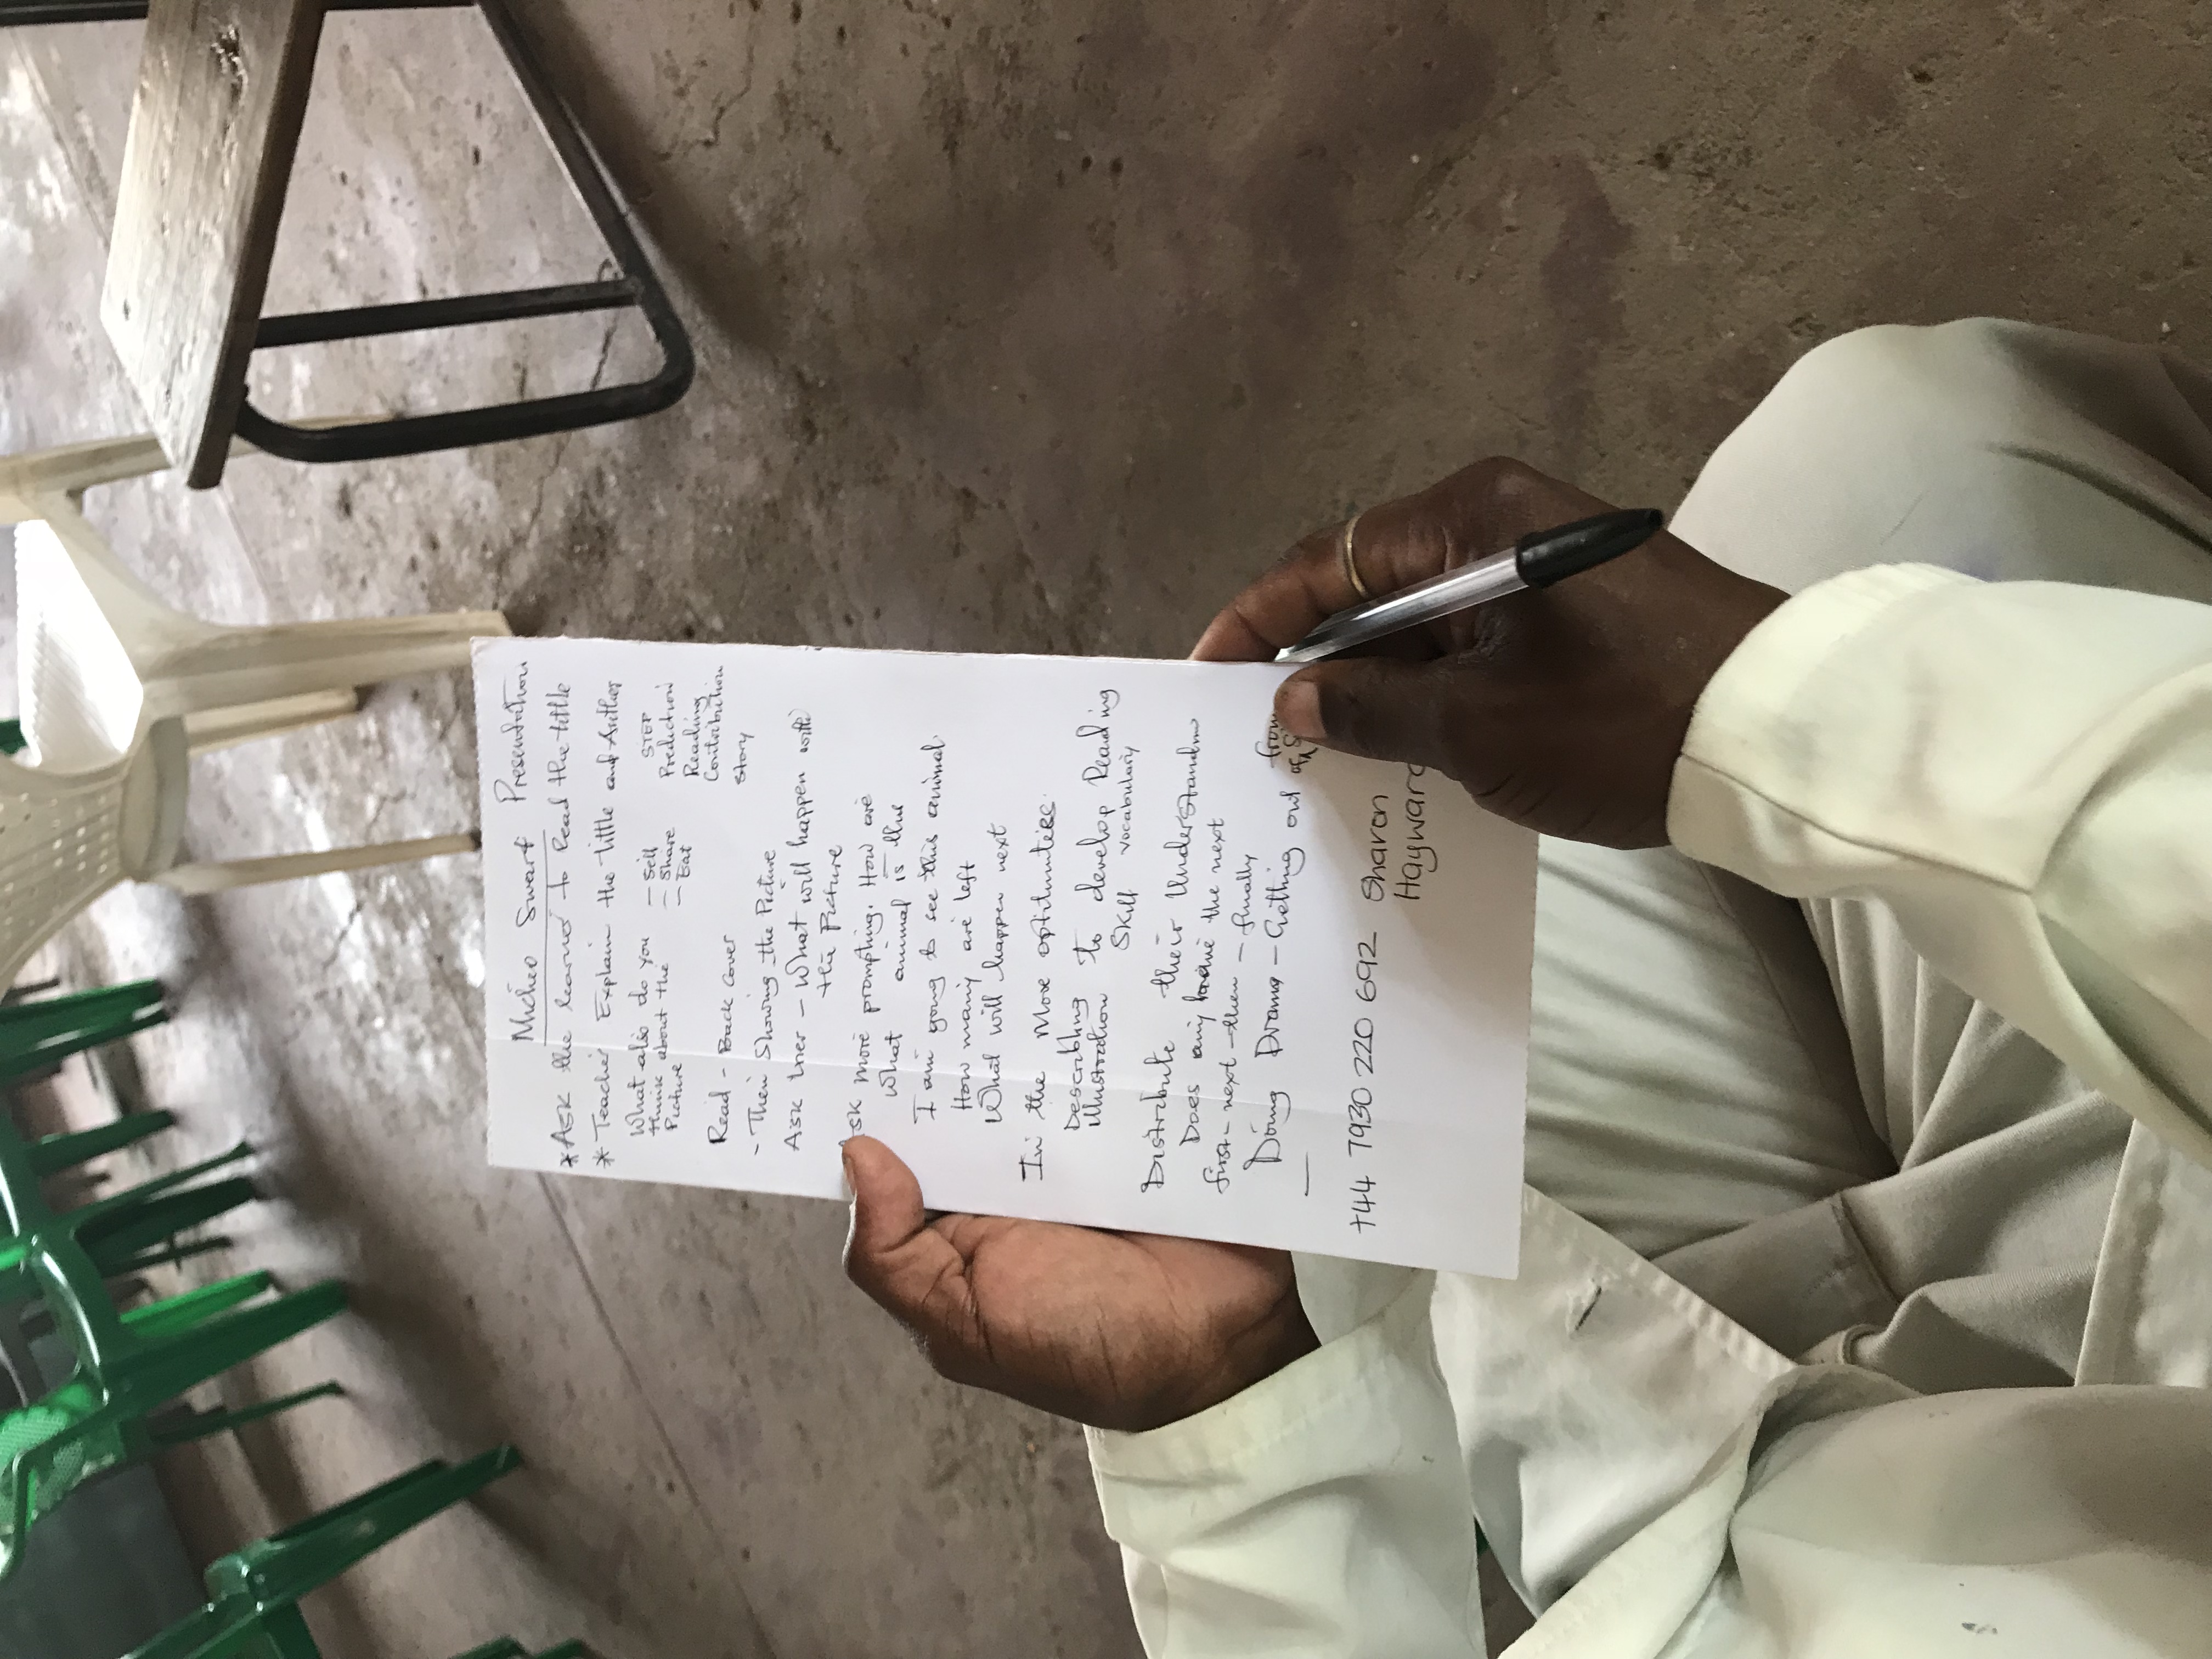 Micheo Swart Presentation
* Ask the learner to Read the tittle
* Teacher Explain the tittle and Auther
What also do you — Sell STEP
think about the — Share Prediction
Picture — Eat Reading
Contribution
Read - Back cover story
- Then Showing the Picture
Ask her - What will happen with
the Picture
Ask more prompting. How are
What animal is this
I am going to see this animal.
How many are left
What will happen next
In the More optunities.
Describing to develop Reading
illustration Skill vocabulary
Distribute their Understandin
Does any the next
first - next - then - finally
Doing Drama - Getting out from
— of
+44 7930 220 692 Sharon
Hayward